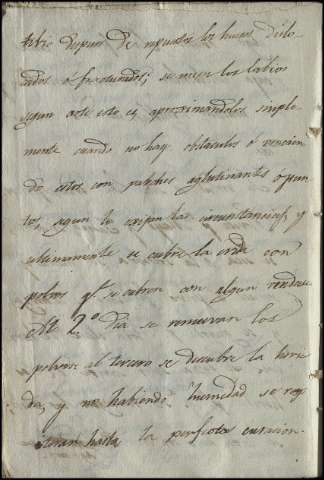 tibio despues de repuestos los huesos dislo-
cados o fracturados; se unen los labios
segun arte esto es aproximandolos simple
mente cuando no hay obstaculos ó vencien
do estos con parches aglutinantes o pun
tos, segun lo exijan las circunstancias, y
ultimamente se cubre la erida con
polvos qe. se cubren con algun vendaje
Al 2.º dia se remueven los
polvos al tercero se descubre la heri
da, y no habiendo humedad se rey
teran hasta la perfecta curacion.